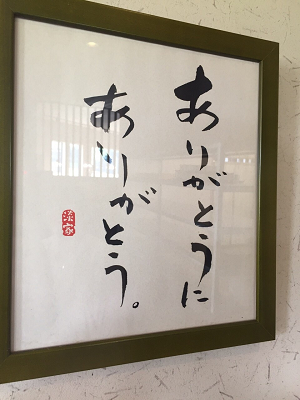 ありがとうに
ありがとう。